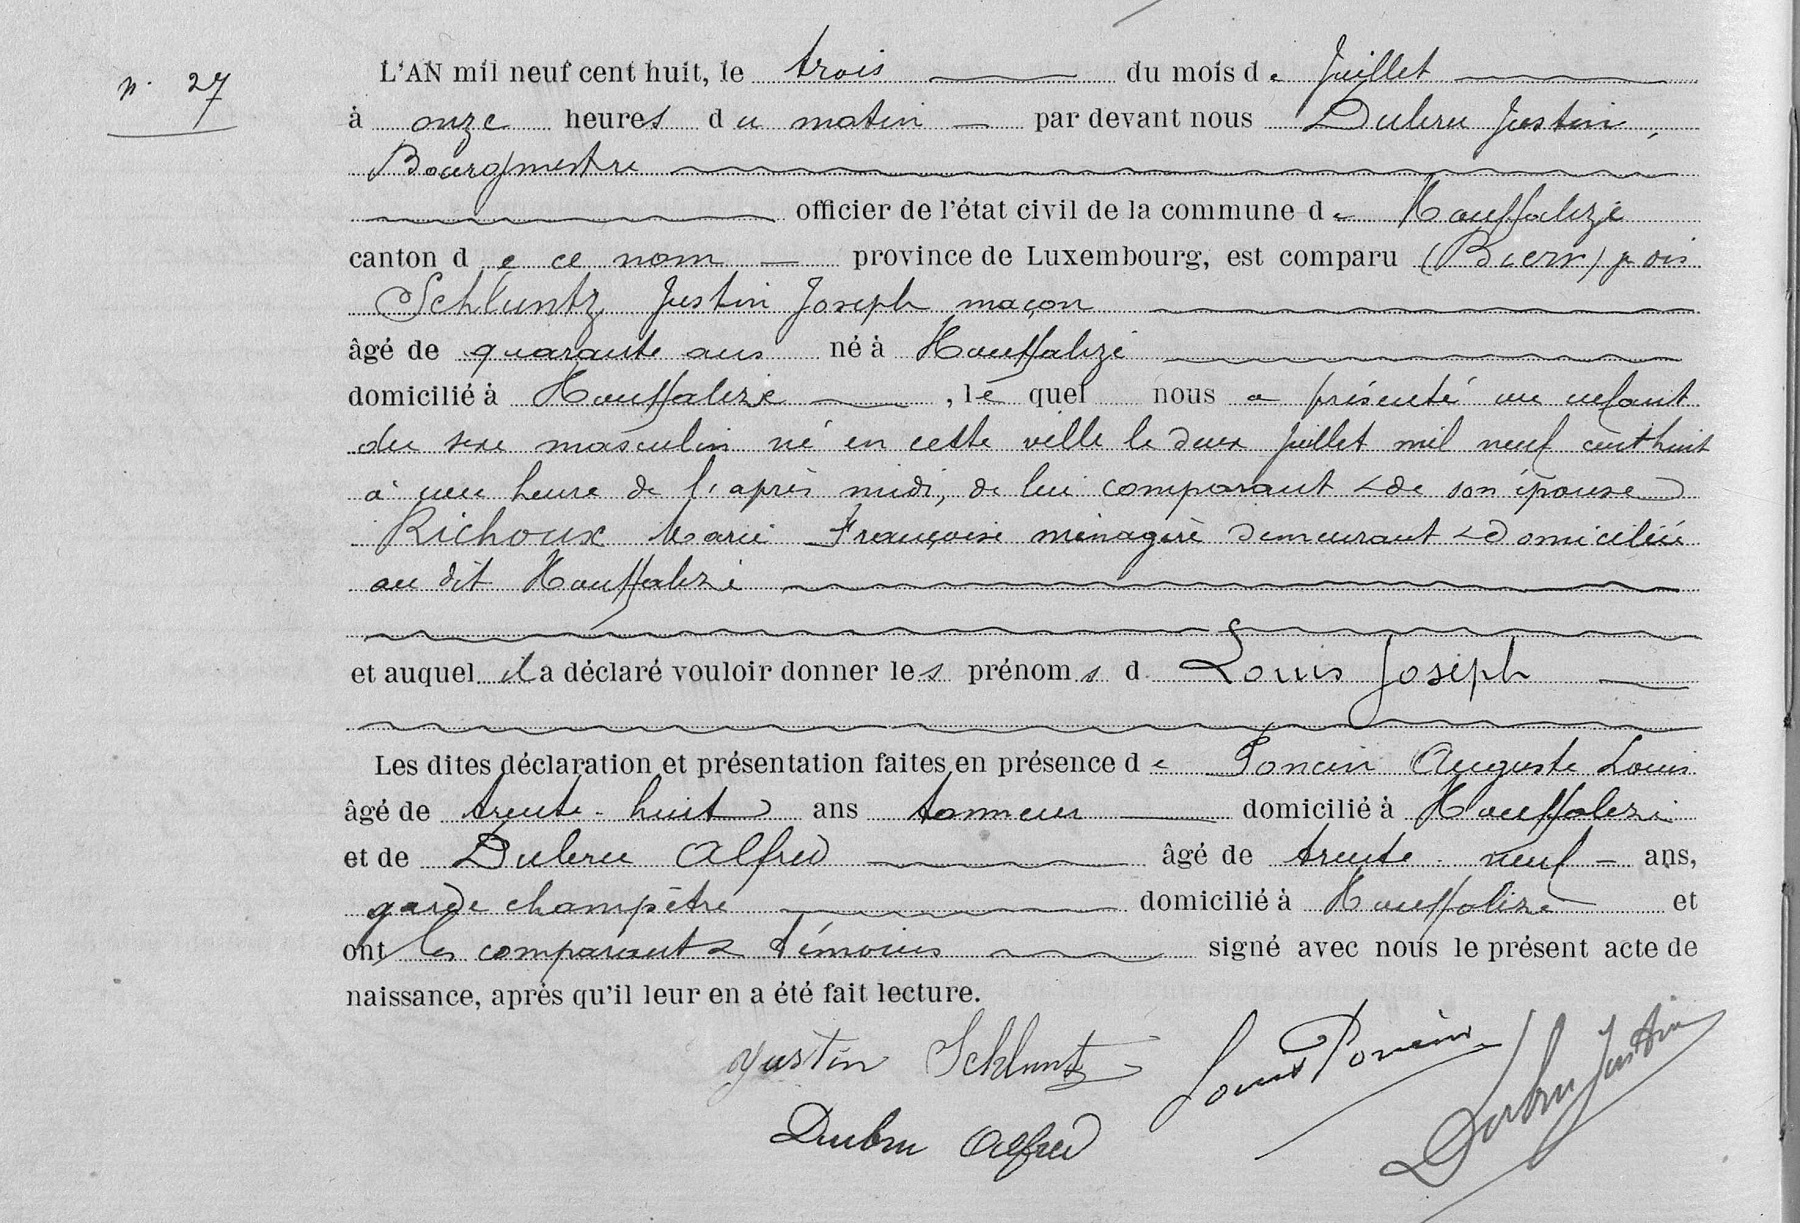 n. 27
L'AN mil neuf cent huit, le trois du mois de Juillet
à onze heures du matin par devant nous Dubru Justin,
Bourgmestre
officier de l'état civil de la commune de Houffalize
canton de ce nom province de Luxembourg, est comparu
Schluntz Justin Joseph maçon
âgé de quarante ans né à Houffalize
domicilié à Houffalize, lequel nous a présenté un enfant
du sexe masculin né en cette ville le deux juillet mil neuf cent huit
à une heure de l'après midi, de lui comparant & de son épouse
Richoux Marie Françoise ménagère demeurant & domiciliée
au dit Houffalize
et auquel il a déclaré vouloir donner les prénoms d Louis Joseph
Les dites déclaration et présentation faites en présence de Poncin Auguste Louis
âgé de trente-huit ans tanneur domicilié à Houffalize
et de Dubru Alfred âgé de trente-neuf ans,
garde champêtre domicilié à Houffalize et
ont les comparant & témoins signé avec nous le présent acte de
naissance, après qu'il leur en a été fait lecture.
Justin Schluntz Louis Poncin Dubru Justin
Dubru Alfred